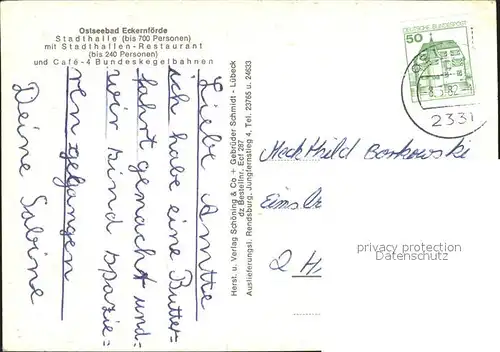 Ostseebad Eckernförde
Stadthalle (bis 700 Personen)
mit Stadthallen-Restaurant
(bis 240 Personen)
und Café - 4 Bundeskegelbahnen
Liebe Anntte
ich habe eine Butter=
fahrt gemacht und
wir sind spazie=
ren gegangen
Deine Sabine
Herst. u. Verlag Schöning & Co + Gebrüder Schmidt - Lübeck
dz Bestellnr. Ecf 287
Auslieferungsl. Rendsburg, Jungfernstieg 4, Tel. 23765 u. 24633
DEUTSCHE BUNDESPOST
50
82
2331
Mechthild Borkowski
Eims
2 H
privacy protection
Datenschutz